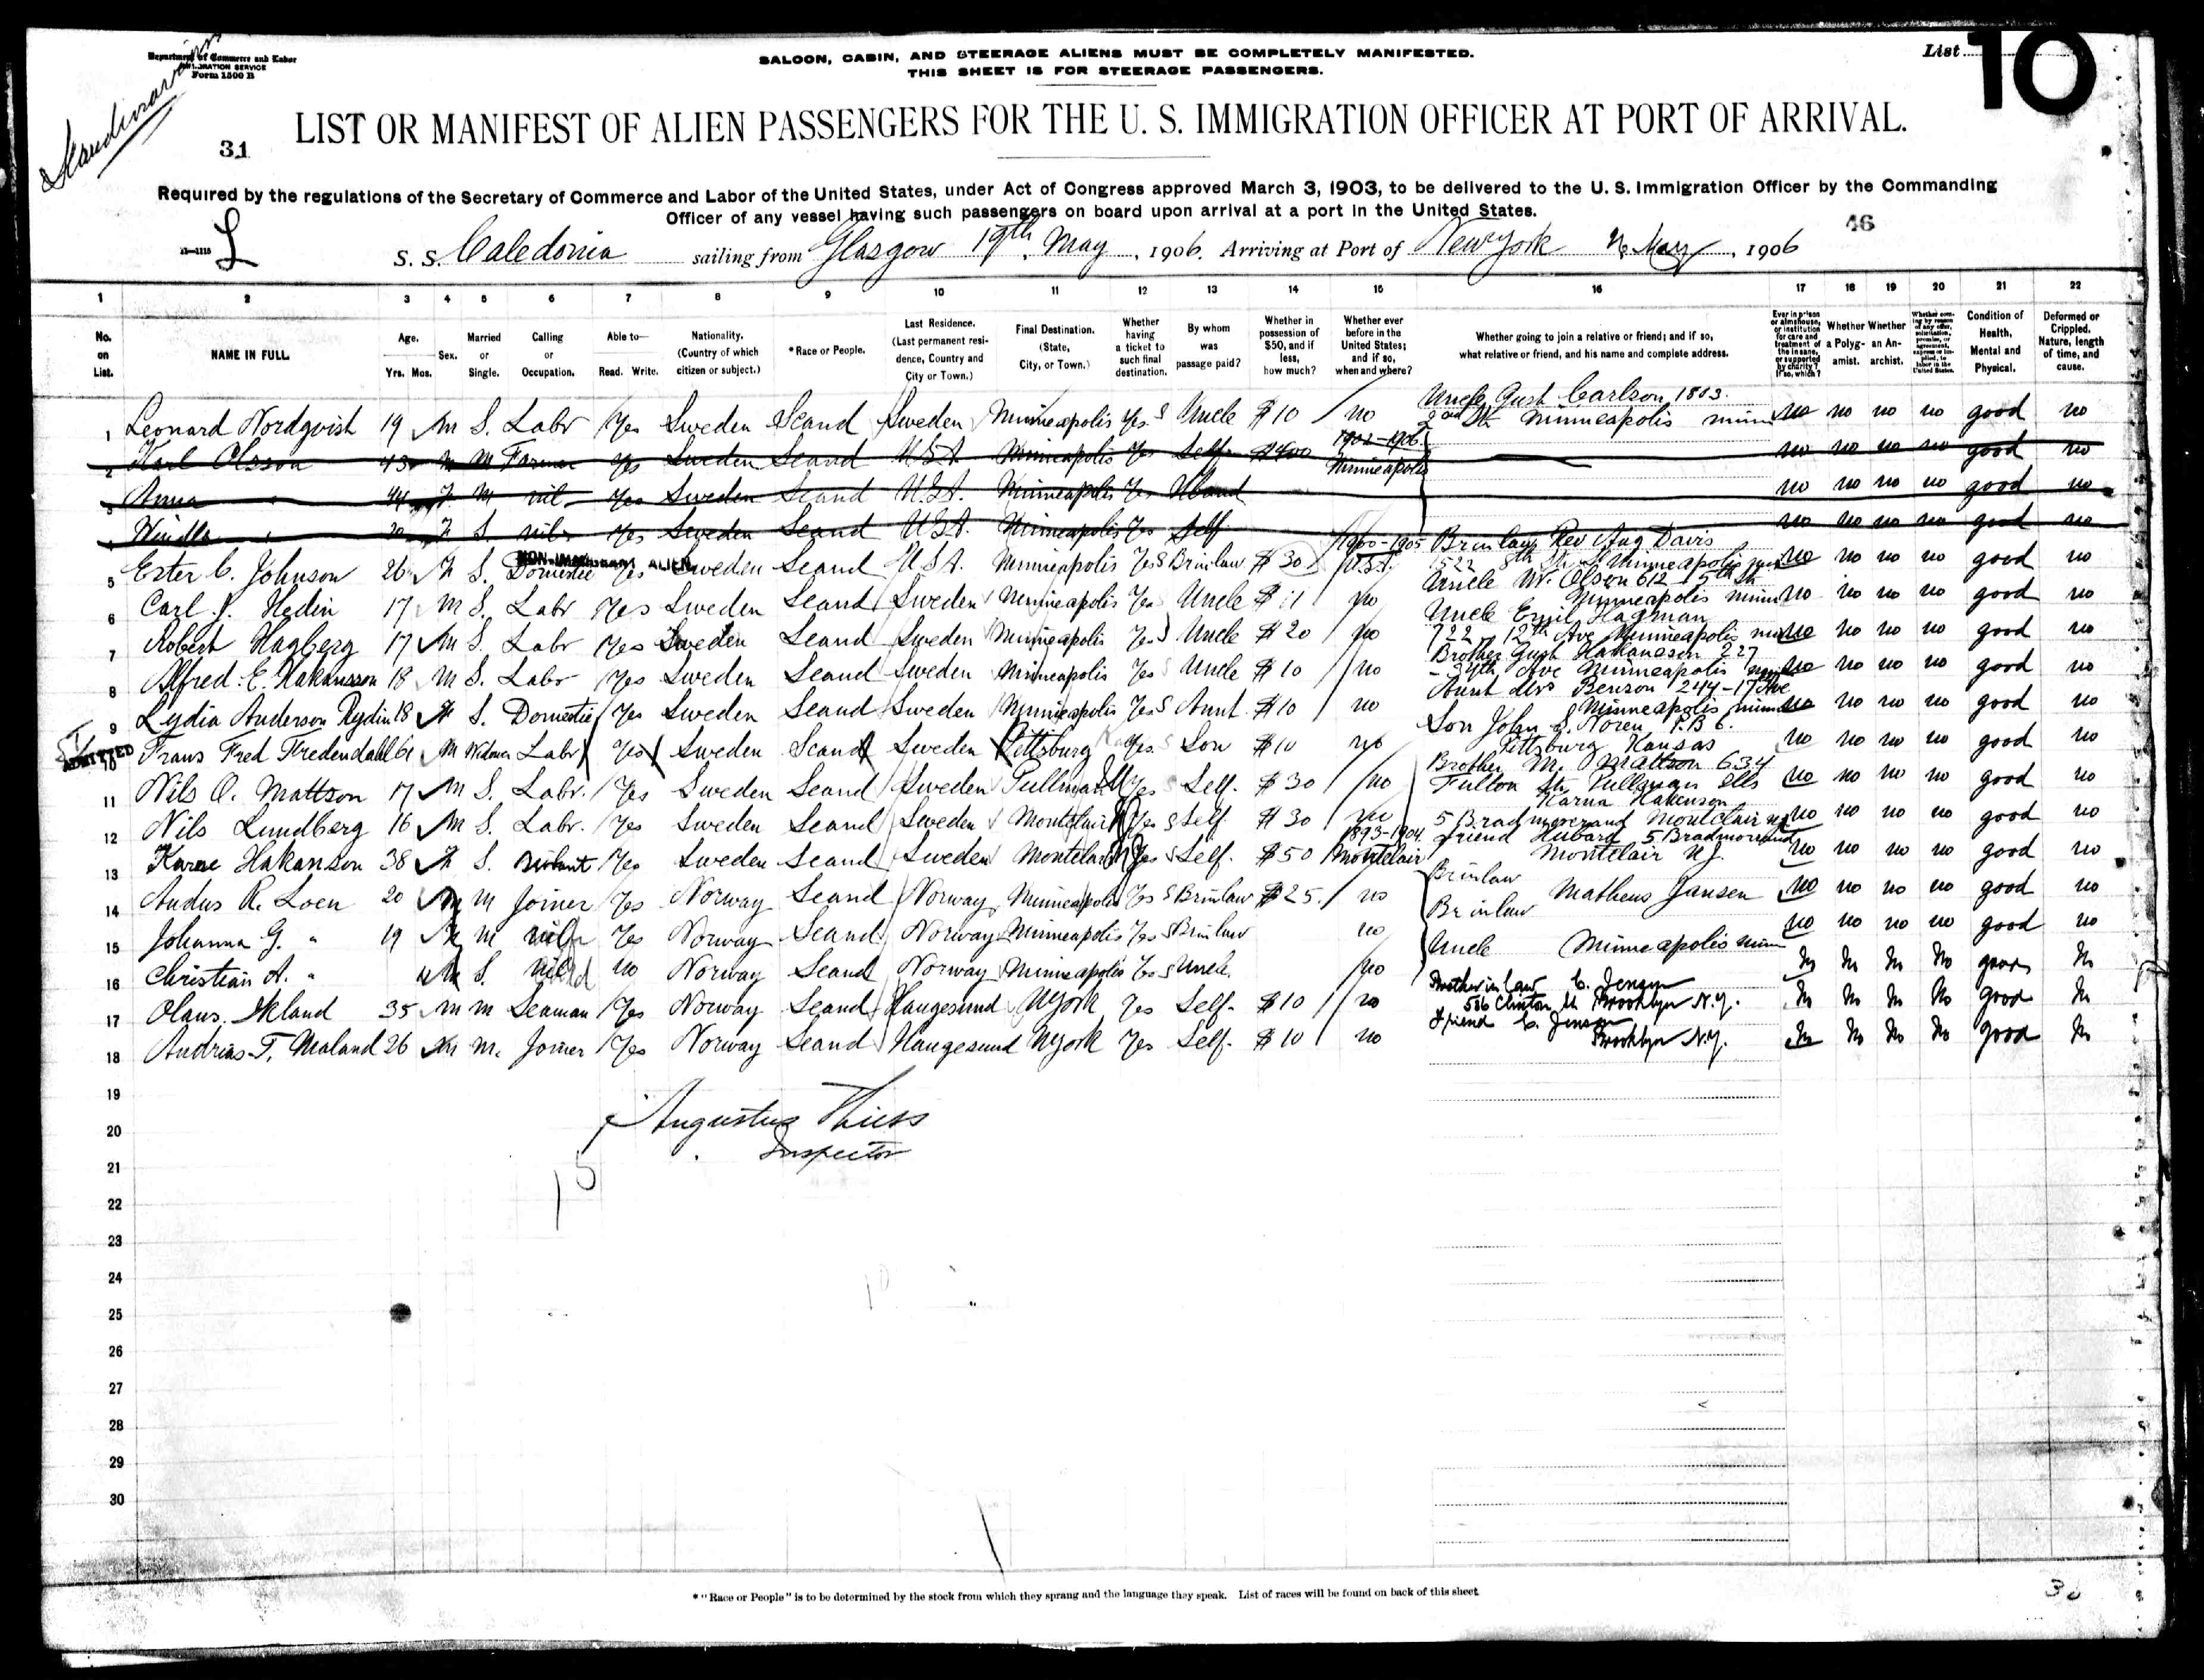 Scandinavian
Department of Commerce and Labor
IMMIGRATION SERVICE
Form 1500 B
SALOON, CABIN, AND STEERAGE ALIENS MUST BE COMPLETELY MANIFESTED.
THIS SHEET IS FOR STEERAGE PASSENGERS.
List 10
31
LIST OR MANIFEST OF ALIEN PASSENGERS FOR THE U. S. IMMIGRATION OFFICER AT PORT OF ARRIVAL.
Required by the regulations of the Secretary of Commerce and Labor of the United States, under Act of Congress approved March 3, 1903, to be delivered to the U. S. Immigration Officer by the Commanding
Officer of any vessel having such passengers on board upon arrival at a port in the United States.
46
11—1115
L
S. S. Caledonia sailing from Glasgow 19th May, 1906. Arriving at Port of New York 26 May, 1906
1 2 3 4 5 6 7 8 9 10 11 12 13 14 15 16 17 18 19 20 21 22
No. on List.
NAME IN FULL.
Age. Yrs. Mos.
Sex.
Married or Single.
Calling or Occupation.
Able to— Read. Write.
Nationality. (Country of which citizen or subject.)
*Race or People.
Last Residence. (Last permanent residence, Country and City or Town.)
Final Destination. (State, City, or Town.)
Whether having a ticket to such final destination.
By whom was passage paid?
Whether in possession of $50, and if less, how much?
Whether ever before in the United States; and if so, when and where?
Whether going to join a relative or friend; and if so, what relative or friend, and his name and complete address.
Ever in prison or almshouse, or institution for care and treatment of the insane, or supported by charity? If so, which?
Whether a Polygamist.
Whether an Anarchist.
Condition of Health, Mental and Physical.
Deformed or Crippled. Nature, length of time, and cause.
1 Leonard Nordqvist 19 M S. Labr Yes Sweden Scand Sweden Minneapolis Yes Uncle $10 no Uncle Gust Carlson 1803 2nd St Minneapolis minn no no no no good no
2 Karl Olsson 43 M M Farmer Yes Sweden Scand U.S.A. Minneapolis Yes Self $400 1902-1906 Minneapolis no no no no good no
3 Anna " 44 F M nil Yes Sweden Scand U.S.A. Minneapolis Yes no no no no good no
4 " 20 F S. nil Yes Sweden Scand U.S.A. Minneapolis Yes Self no no no no good no
5 Ester C. Johnson 26 F S. Domestic NON-IMMIGRANT ALIEN Yes Sweden Scand U.S.A. Minneapolis Yes Brinlaw $30 1900-1905 U.S.A. Brinlaw Rev Aug Davis 1522 8th St Minneapolis no no no no good no
6 Carl J. Hedin 17 M S. Labr Yes Sweden Scand Sweden Minneapolis Yes Uncle $11 no Uncle W. Olson 612 15th St Minneapolis minn no no no no good no
7 Robert Hagberg 17 M S. Labr Yes Sweden Scand Sweden Minneapolis Yes Uncle $20 no Uncle Emil Hagman 722 12th Ave Minneapolis no no no no good no
8 Alfred E. Hakansson 18 M S. Labr Yes Sweden Scand Sweden Minneapolis Yes Uncle $10 no Brother Gust Hakansson 227 - 29th Ave Minneapolis no no no no good no
9 Lydia Anderson Rydin 18 F S. Domestic Yes Sweden Scand Sweden Minneapolis Yes Aunt $10 no Aunt Mrs Benson 244-17 Ave Minneapolis minn no no no no good no
ADMITTED
10 Frans Fred Fredendahl 61 M Widower Labr Yes Sweden Scand Sweden Pittsburg Yes Son $10 no Son John S. Noren P.B 6. Pittsburg Kansas no no no no good no
11 Nils O. Mattson 17 M S. Labr. Yes Sweden Scand Sweden Pullman Ill Yes Self. $30 no Brother M. Mattson 634 Fulton St Pullman Ills no no no no good no
12 Nils Lundberg 16 M S. Labr. Yes Sweden Scand Sweden Montclair NJ Yes Self $30 no Karna Hakenson 5 Montclair NJ no no no no good no
13 Karne Hakanson 38 F S. Yes Sweden Scand Sweden Montclair NJ Yes Self. $50 1893-1904 Montclair friend Hubard 5 Montclair N.J. no no no no good no
14 Andus R. Loen 20 M M Joiner Yes Norway Scand Norway Minneapolis Yes Brinlaw $25. no Brinlaw Matheus Jansen no no no no good no
15 Johanna G. " 19 F M Yes Norway Scand Norway Minneapolis Yes Brinlaw no Brinlaw no no no no good no
16 Christian A. " M S. no Norway Scand Norway Minneapolis Yes Uncle no Uncle Minneapolis minn no no no no good no
17 Olaus Skland 35 M M Seaman Yes Norway Scand Haugesund N York Yes Self- $10 no Brother in law C. Jensen 586 Clinton St Brooklyn N.Y. no no no no good no
18 Andrias T. Maland 26 M M. Joiner Yes Norway Scand Haugesund N York Yes Self. $10 no Friend C. Jensen Brooklyn N.Y. no no no no good no
19
Augustus Thiess
20
Inspector
21
15
22
23
24
25
26
27
28
29
30
* "Race or People" is to be determined by the stock from which they sprang and the language they speak. List of races will be found on back of this sheet
30